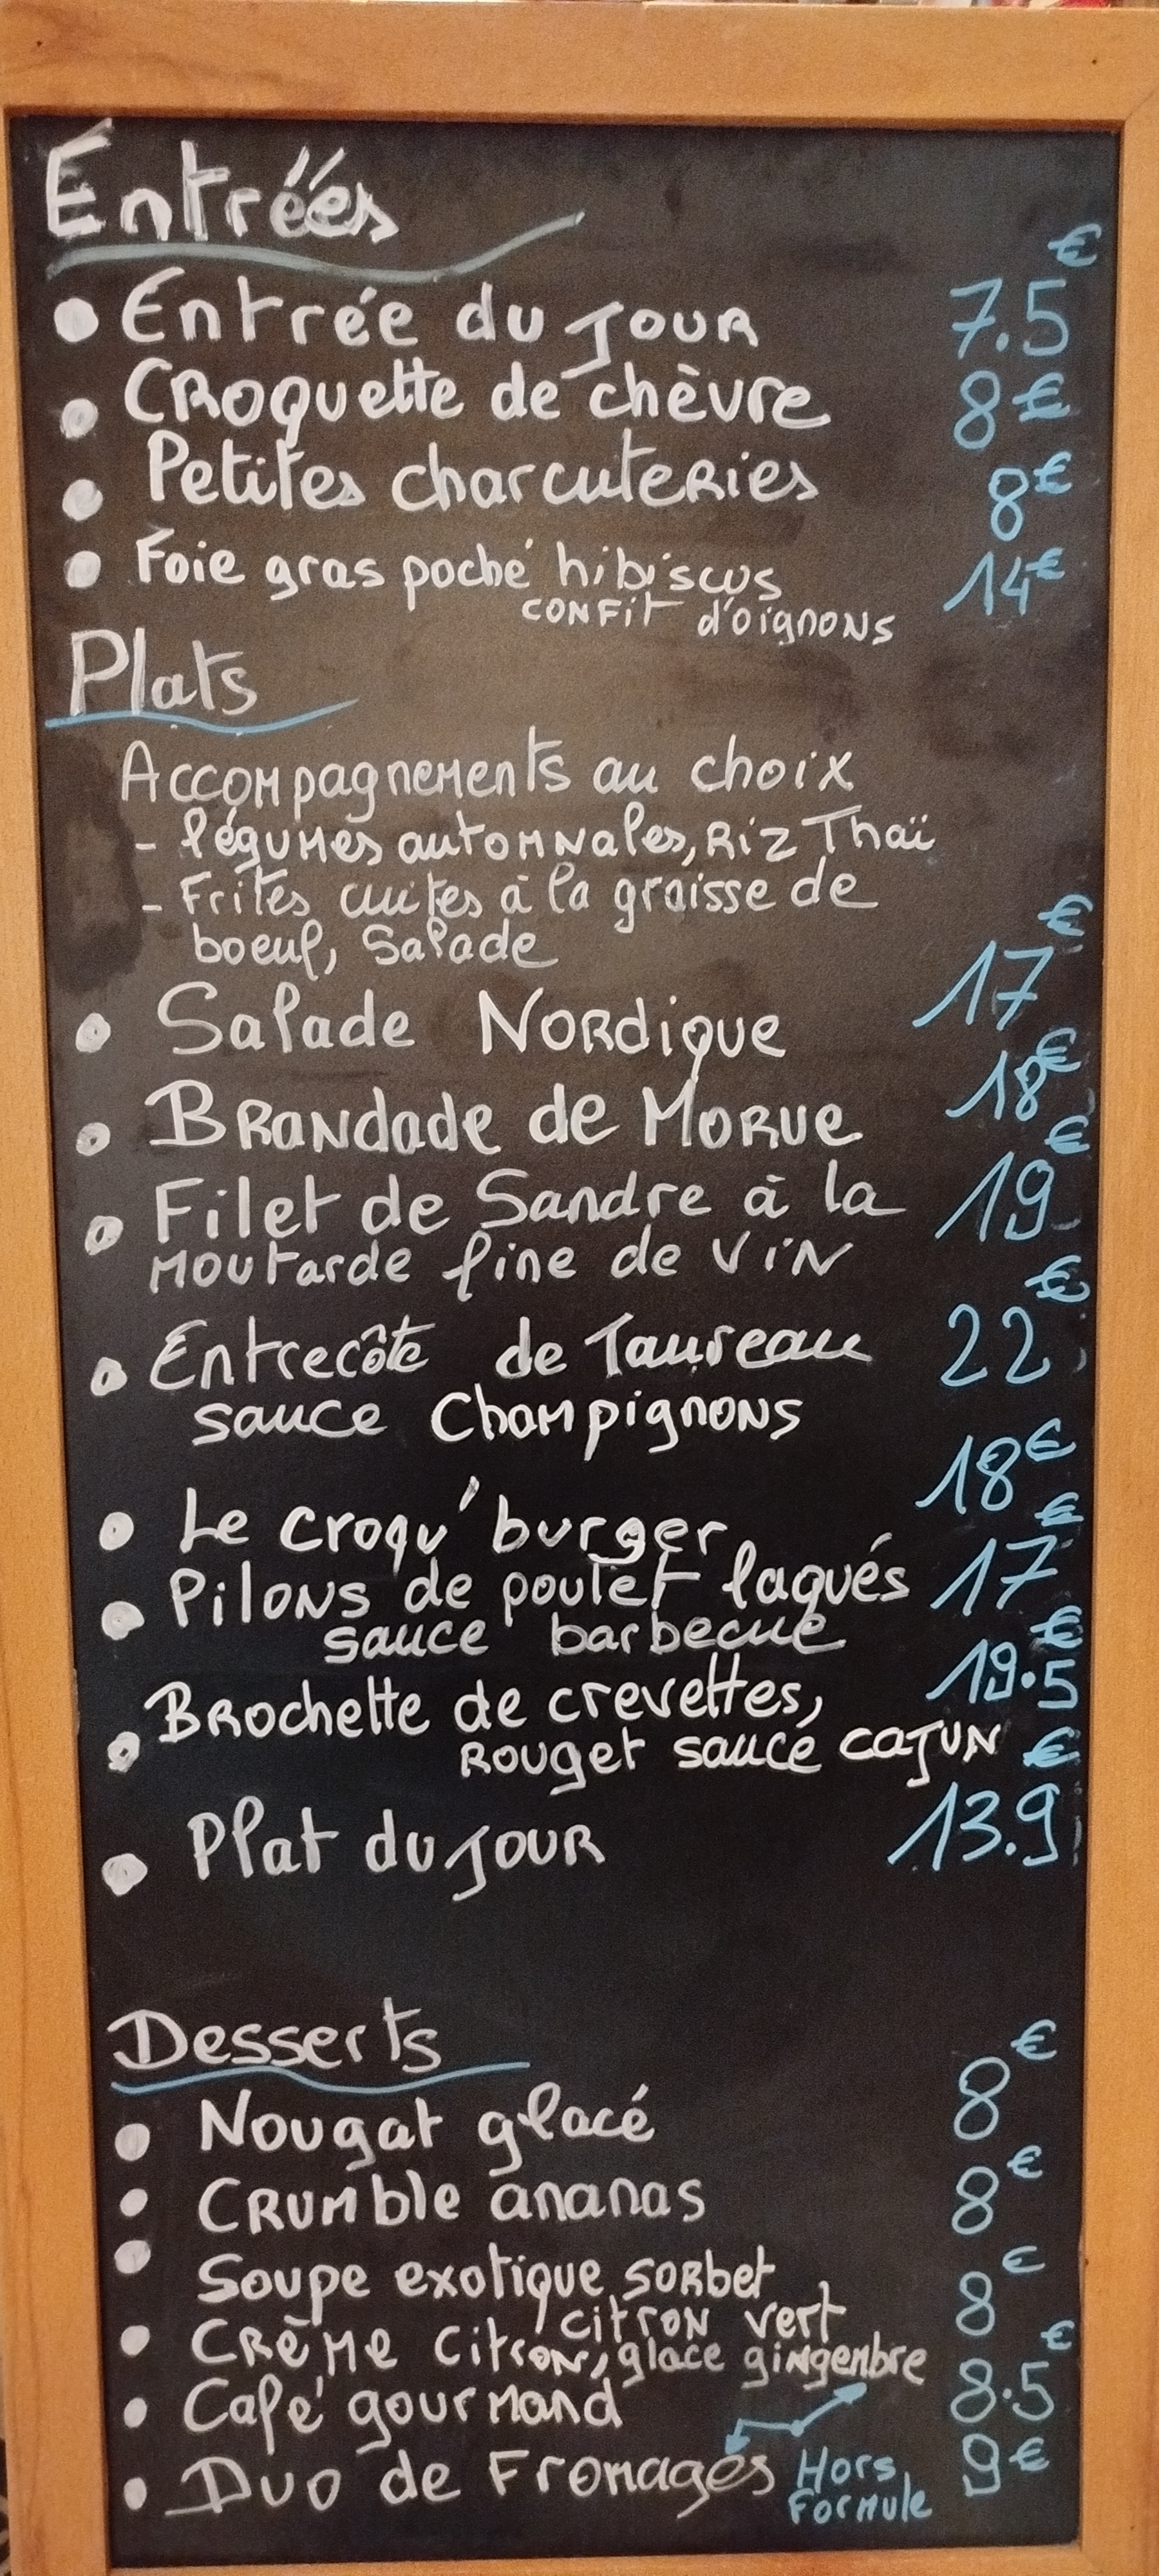 Entrées
€
• Entrée du jour 7.5
• Croquette de chèvre 8€
• Petites charcuteries 8€
• Foie gras poché hibiscus 14€
confit d'oignons
Plats
Accompagnements au choix
- légumes automnales, Riz Thaï
- Frites cuites à la graisse de
boeuf, Salade
€
• Salade Nordique 17
• Brandade de Morue 18€
€
• Filet de Sandre à la 19
moutarde fine de vin
€
• Entrecôte de Taureau 22
sauce Champignons
• Le croqu'burger 18€
€
• Pilons de poulet laqués 17
sauce barbecue
€
• Brochette de crevettes, 19.5
Rouget sauce cajun
€
• Plat du jour 13.9
Desserts
• Nougat glacé 8€
• Crumble ananas 8€
• Soupe exotique, sorbet 8€
citron vert
• Crème citron, glace gingembre
€
• Café gourmand 8.5
• Duo de Fromages 9€
Hors
Formule